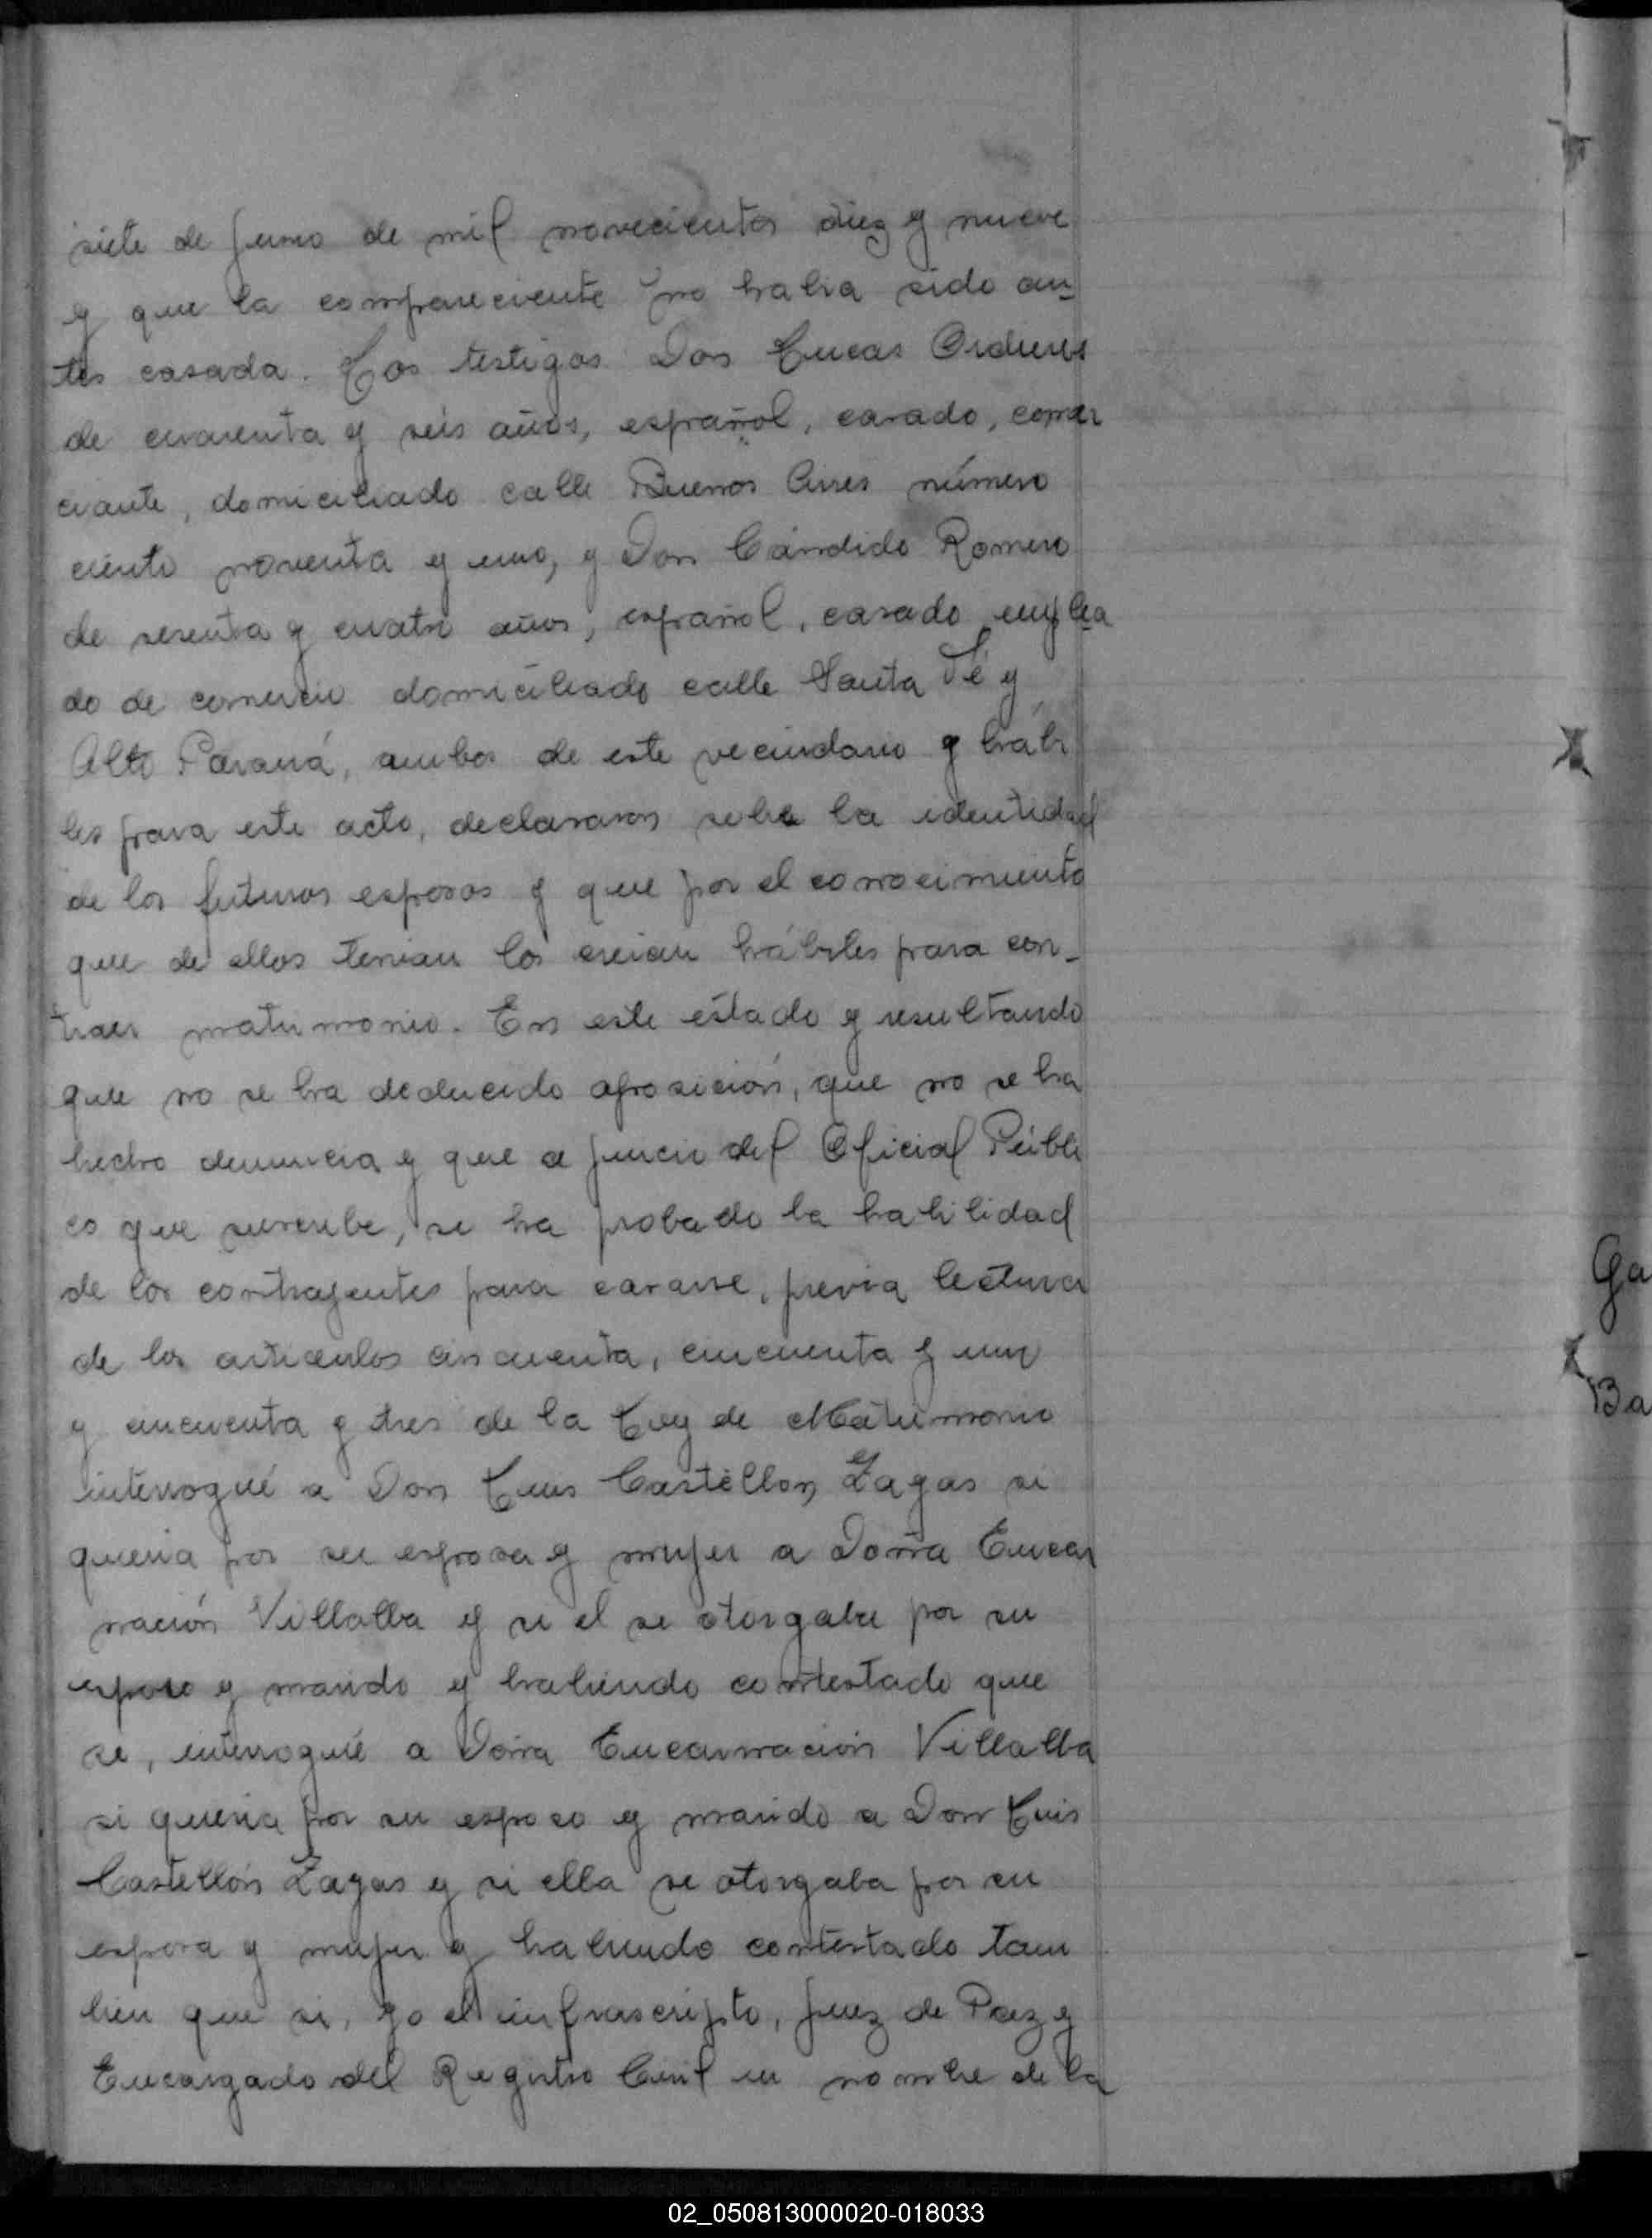 siete de Junio de mil novecientos diez y nueve
y que la compareciente no habia sido an_
tes casada. Los testigos Don Lucas
de cuarenta y seis años, español, casado, comer
ciante, domiciliado calle Buenos Aires número
ciento noventa y uno, y Don Cándido Romero
de sesenta y cuatro años, español, casado emplea
do de comercio domiciliado calle Santa Fé y
Alto Paraná, ambos de este vecindario y hábi
les para este acto, declararon sobre la identidad
de los futuros esposos y que por el conocimiento
que de ellos tenian los creian hábiles para con_
traer matrimonio. En este estado y resultando
que no se ha deducido oposición, que no se ha
hecho denuncia y que a juicio del Oficial Públi
co que suscribe, se ha probado la habilidad
de los contrayentes para casarse, previa lectura
de los articulos cincuenta, cincuenta y uno
y cincuenta y tres de la Ley de Matrimonio
interrogué a Don Luis Castellón Zagas si
queria por su esposa y mujer a Doña Encar
nación Villalba y si el se otorgaba por su
esposo y marido y habiendo contestado que
si, interrogué a Doña Encarnación Villalba
si queria por su esposo y marido a Don Luis
Castellón Zagas y si ella se otorgaba por su
esposa y mujer y habiendo contestado tam
bien que si, yo el infrascripto, Juez de Paz y
Encargado del Registro Civil en nombre de la
Ga
Ba
02_050813000020-018033